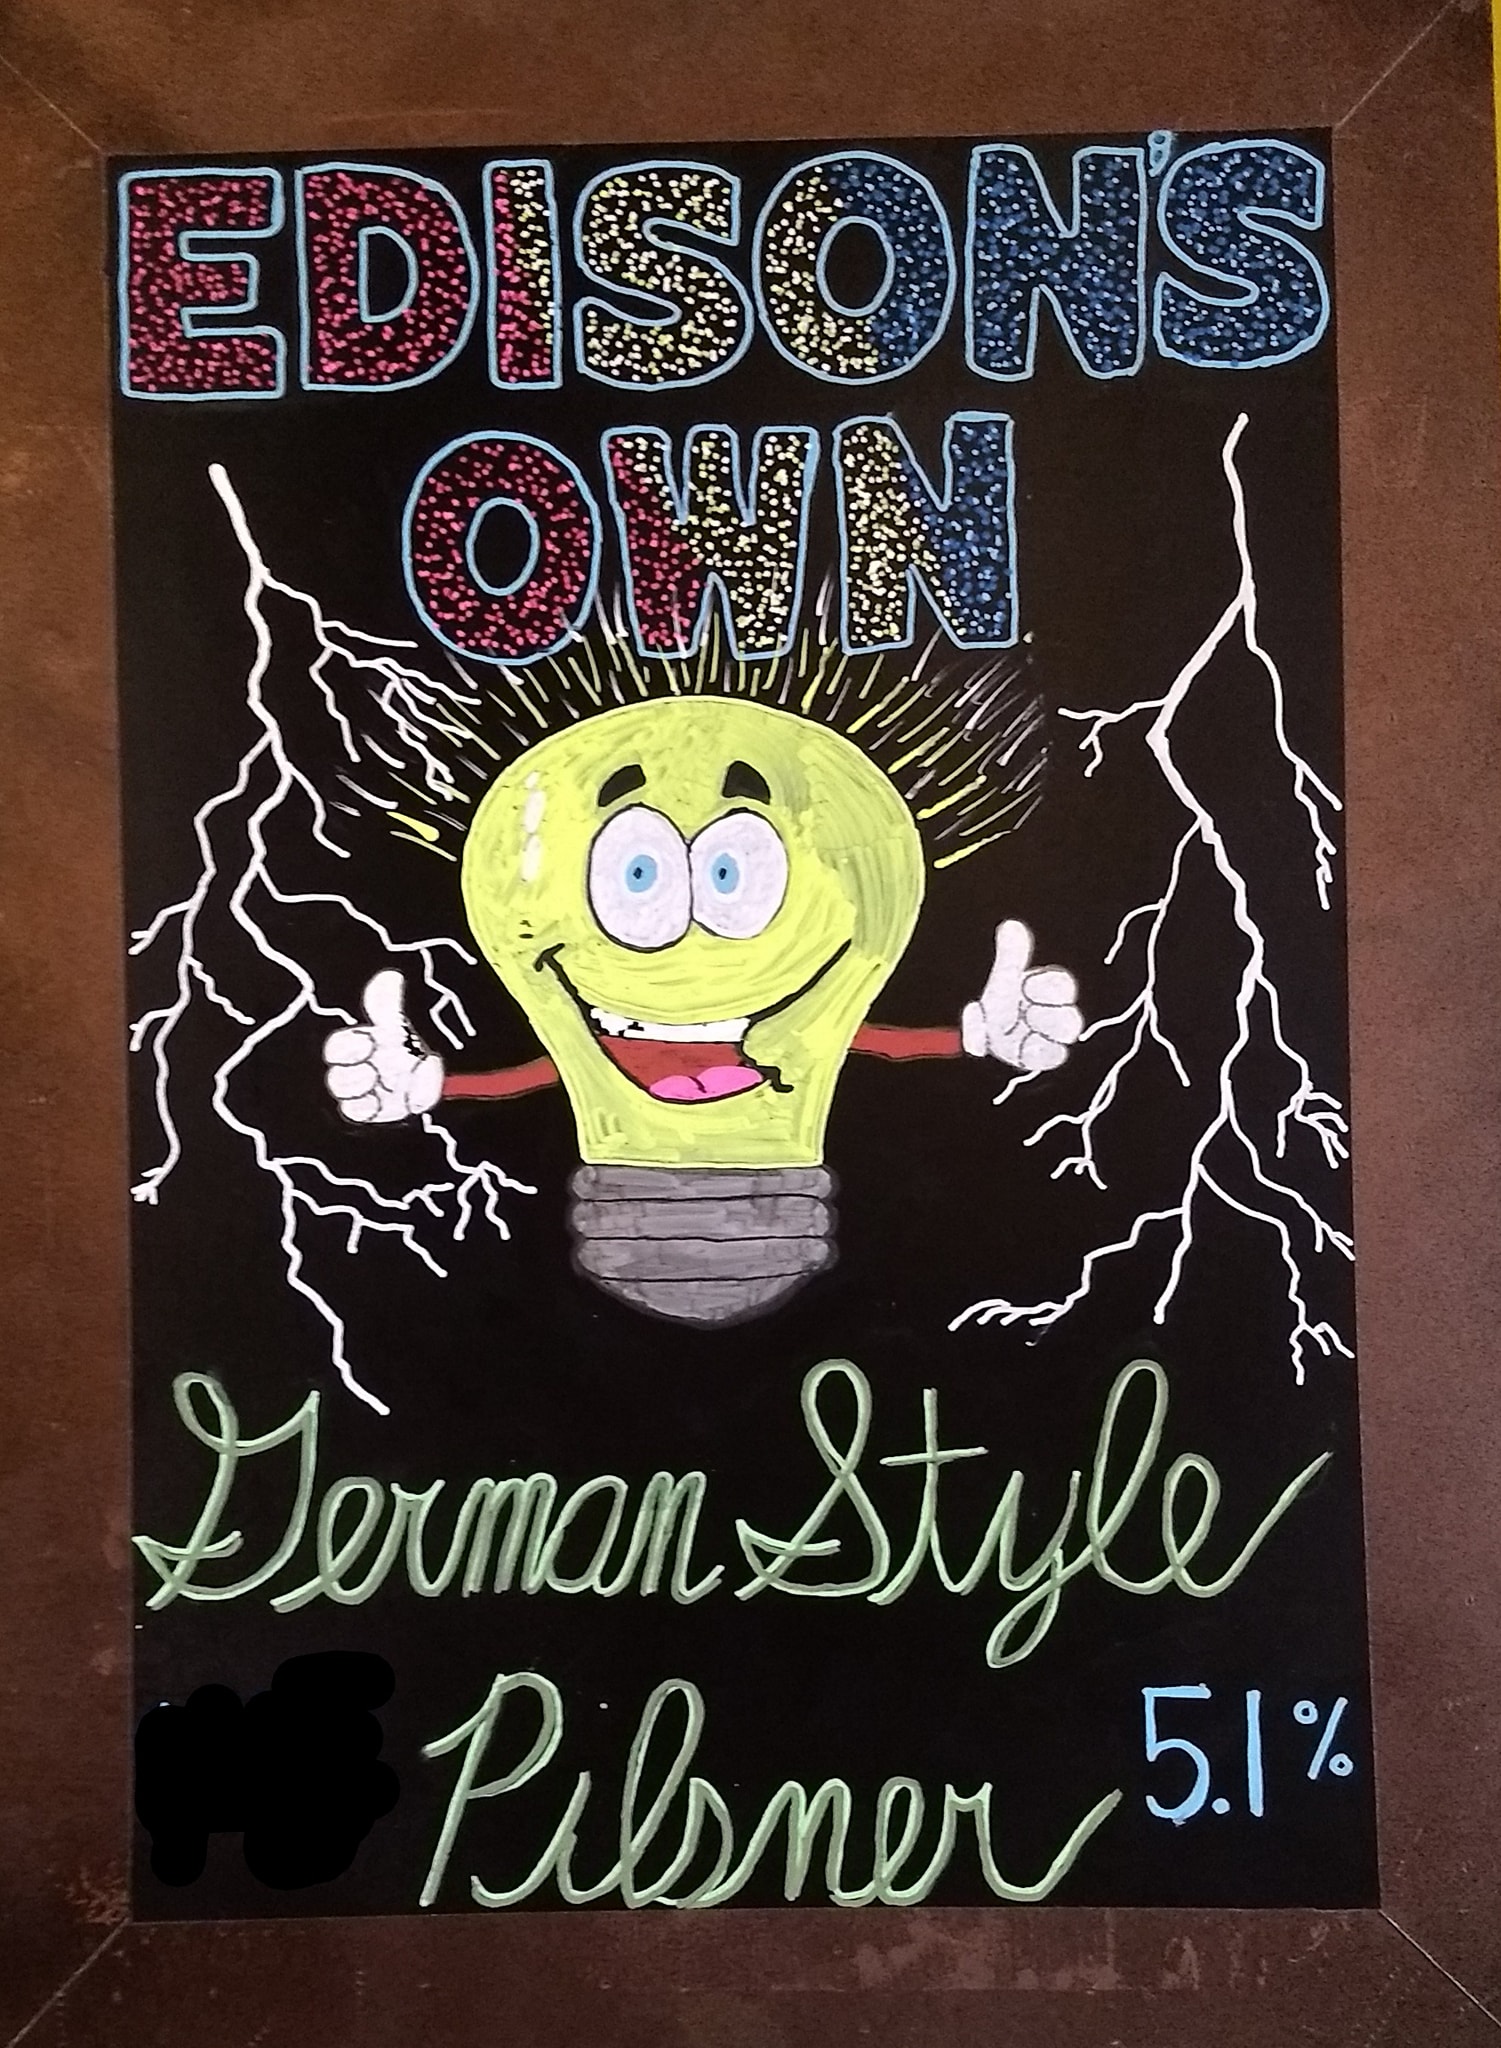 EDISON'S
OWN
German Style
Pilsner 5.1%